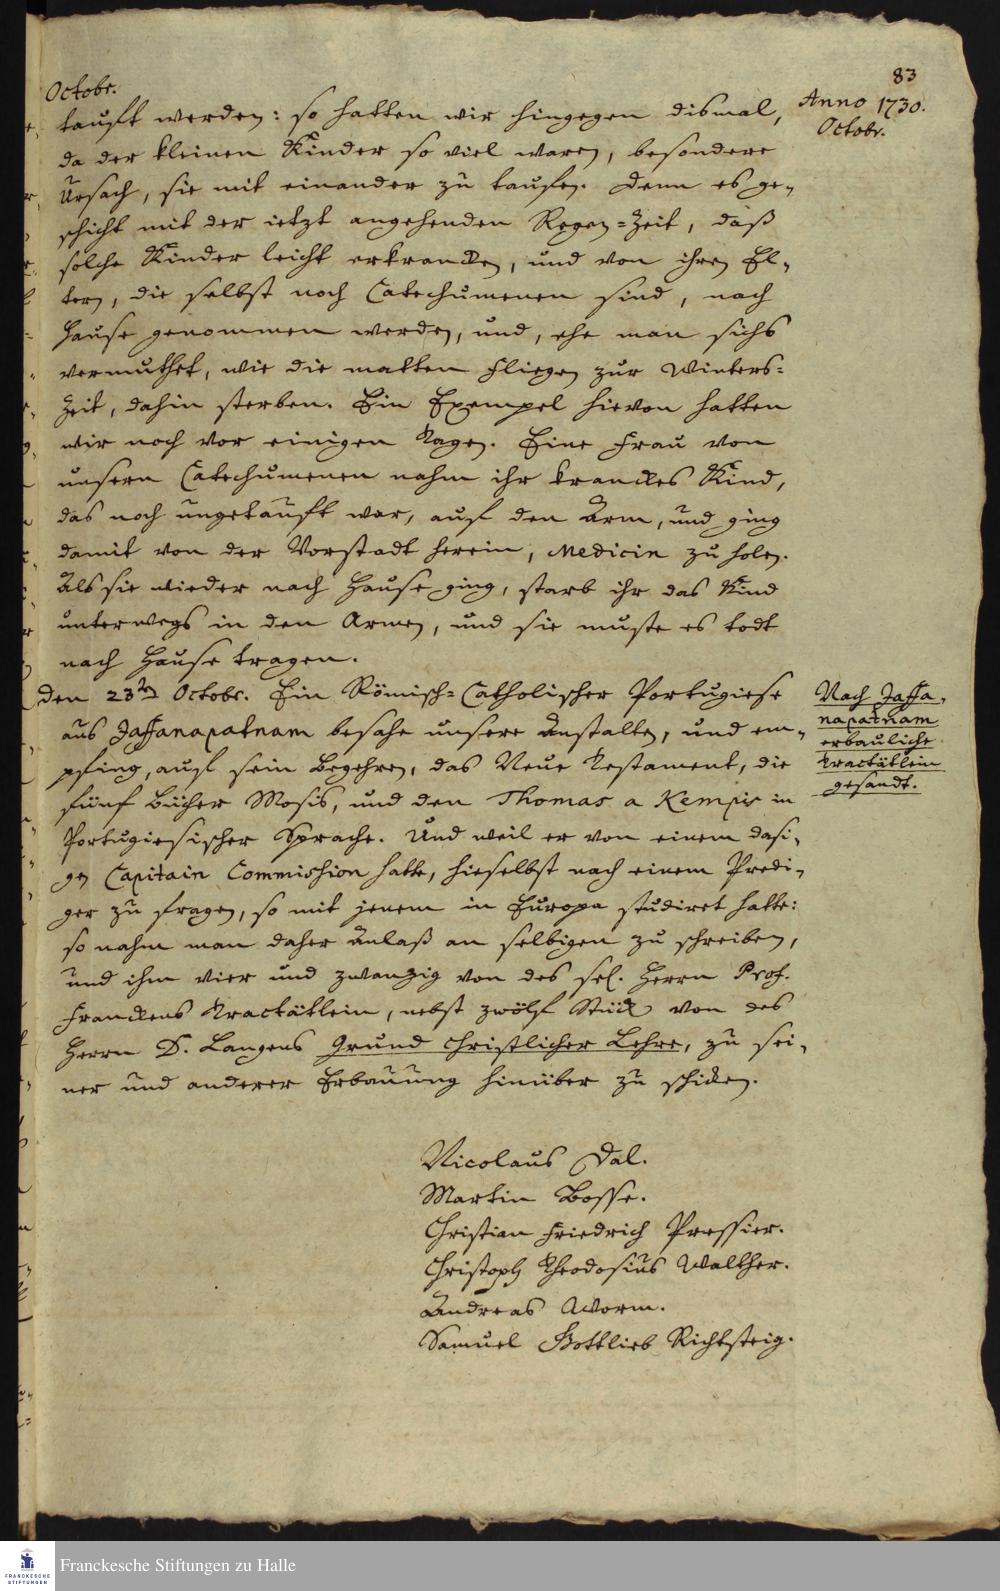 83
Octobr.
Anno 1730.
Octobr.
tauft werden: so hatten wir hingegen dismal,
da der kleinen Kinder so viel waren, besondere
Ursach, sie mit einander zu taufen. Denn es ge-
schicht mit der ietzt angehenden Regen-Zeit, daß
solche Kinder leicht erkrancken, und von ihren El-
tern, die selbst noch Catechumenen sind, nach
Hause genommen werden, und, ehe man sichs
vermuthet, wie die matten Fliegen zur Winters-
Zeit, dahin sterben. Ein Exempel hievon hatten
wir noch vor einigen Tagen. Eine Frau von
unsern Catechumenen nahm ihr kranckes Kind,
das noch ungetauft war, auf den Arm, und ging
damit von der Vorstadt herein, Medicin zu holen.
Als sie wieder nach Hause ging, starb ihr das Kind
unterwegs in den Armen, und sie muste es todt
nach Hause tragen.
den 23ten Octobr. Ein Römisch-Catholischer Portugiese
aus Jaffanapatnam besahe unsere Anstalten, und em-
pfing, auf sein Begehren, das Neue Testament, die
fünf Bücher Mosis, und den Thomas a Kempis in
Portugiesischer Sprache. Und weil er von einem dasi-
gen Capitain Commishion hatte, hieselbst nach einem Predi-
ger zu fragen, so mit jenem in Europa studiret hatte:
so nahm man daher Anlaß an selbigen zu schreiben,
und ihm vier und zwanzig von des sel. Herrn Prof.
Franckens Tractätlein, nebst zwölf Stück von des
Herrn D. Langens Grund Christlicher Lehre, zu sei-
ner und anderer Erbauung hinüber zu schicken.
Nach Jaffa-
napatnam
erbauliche
Tractätlein
gesandt.
Nicolaus Dal.
Martin Bosse.
Christian Friedrich Pressier.
Christoph Theodosius Walther.
Andreas Worm.
Samuel Gottlieb Richtsteig.
FRANCKESCHE
STIFTUNGEN
Franckesche Stiftungen zu Halle